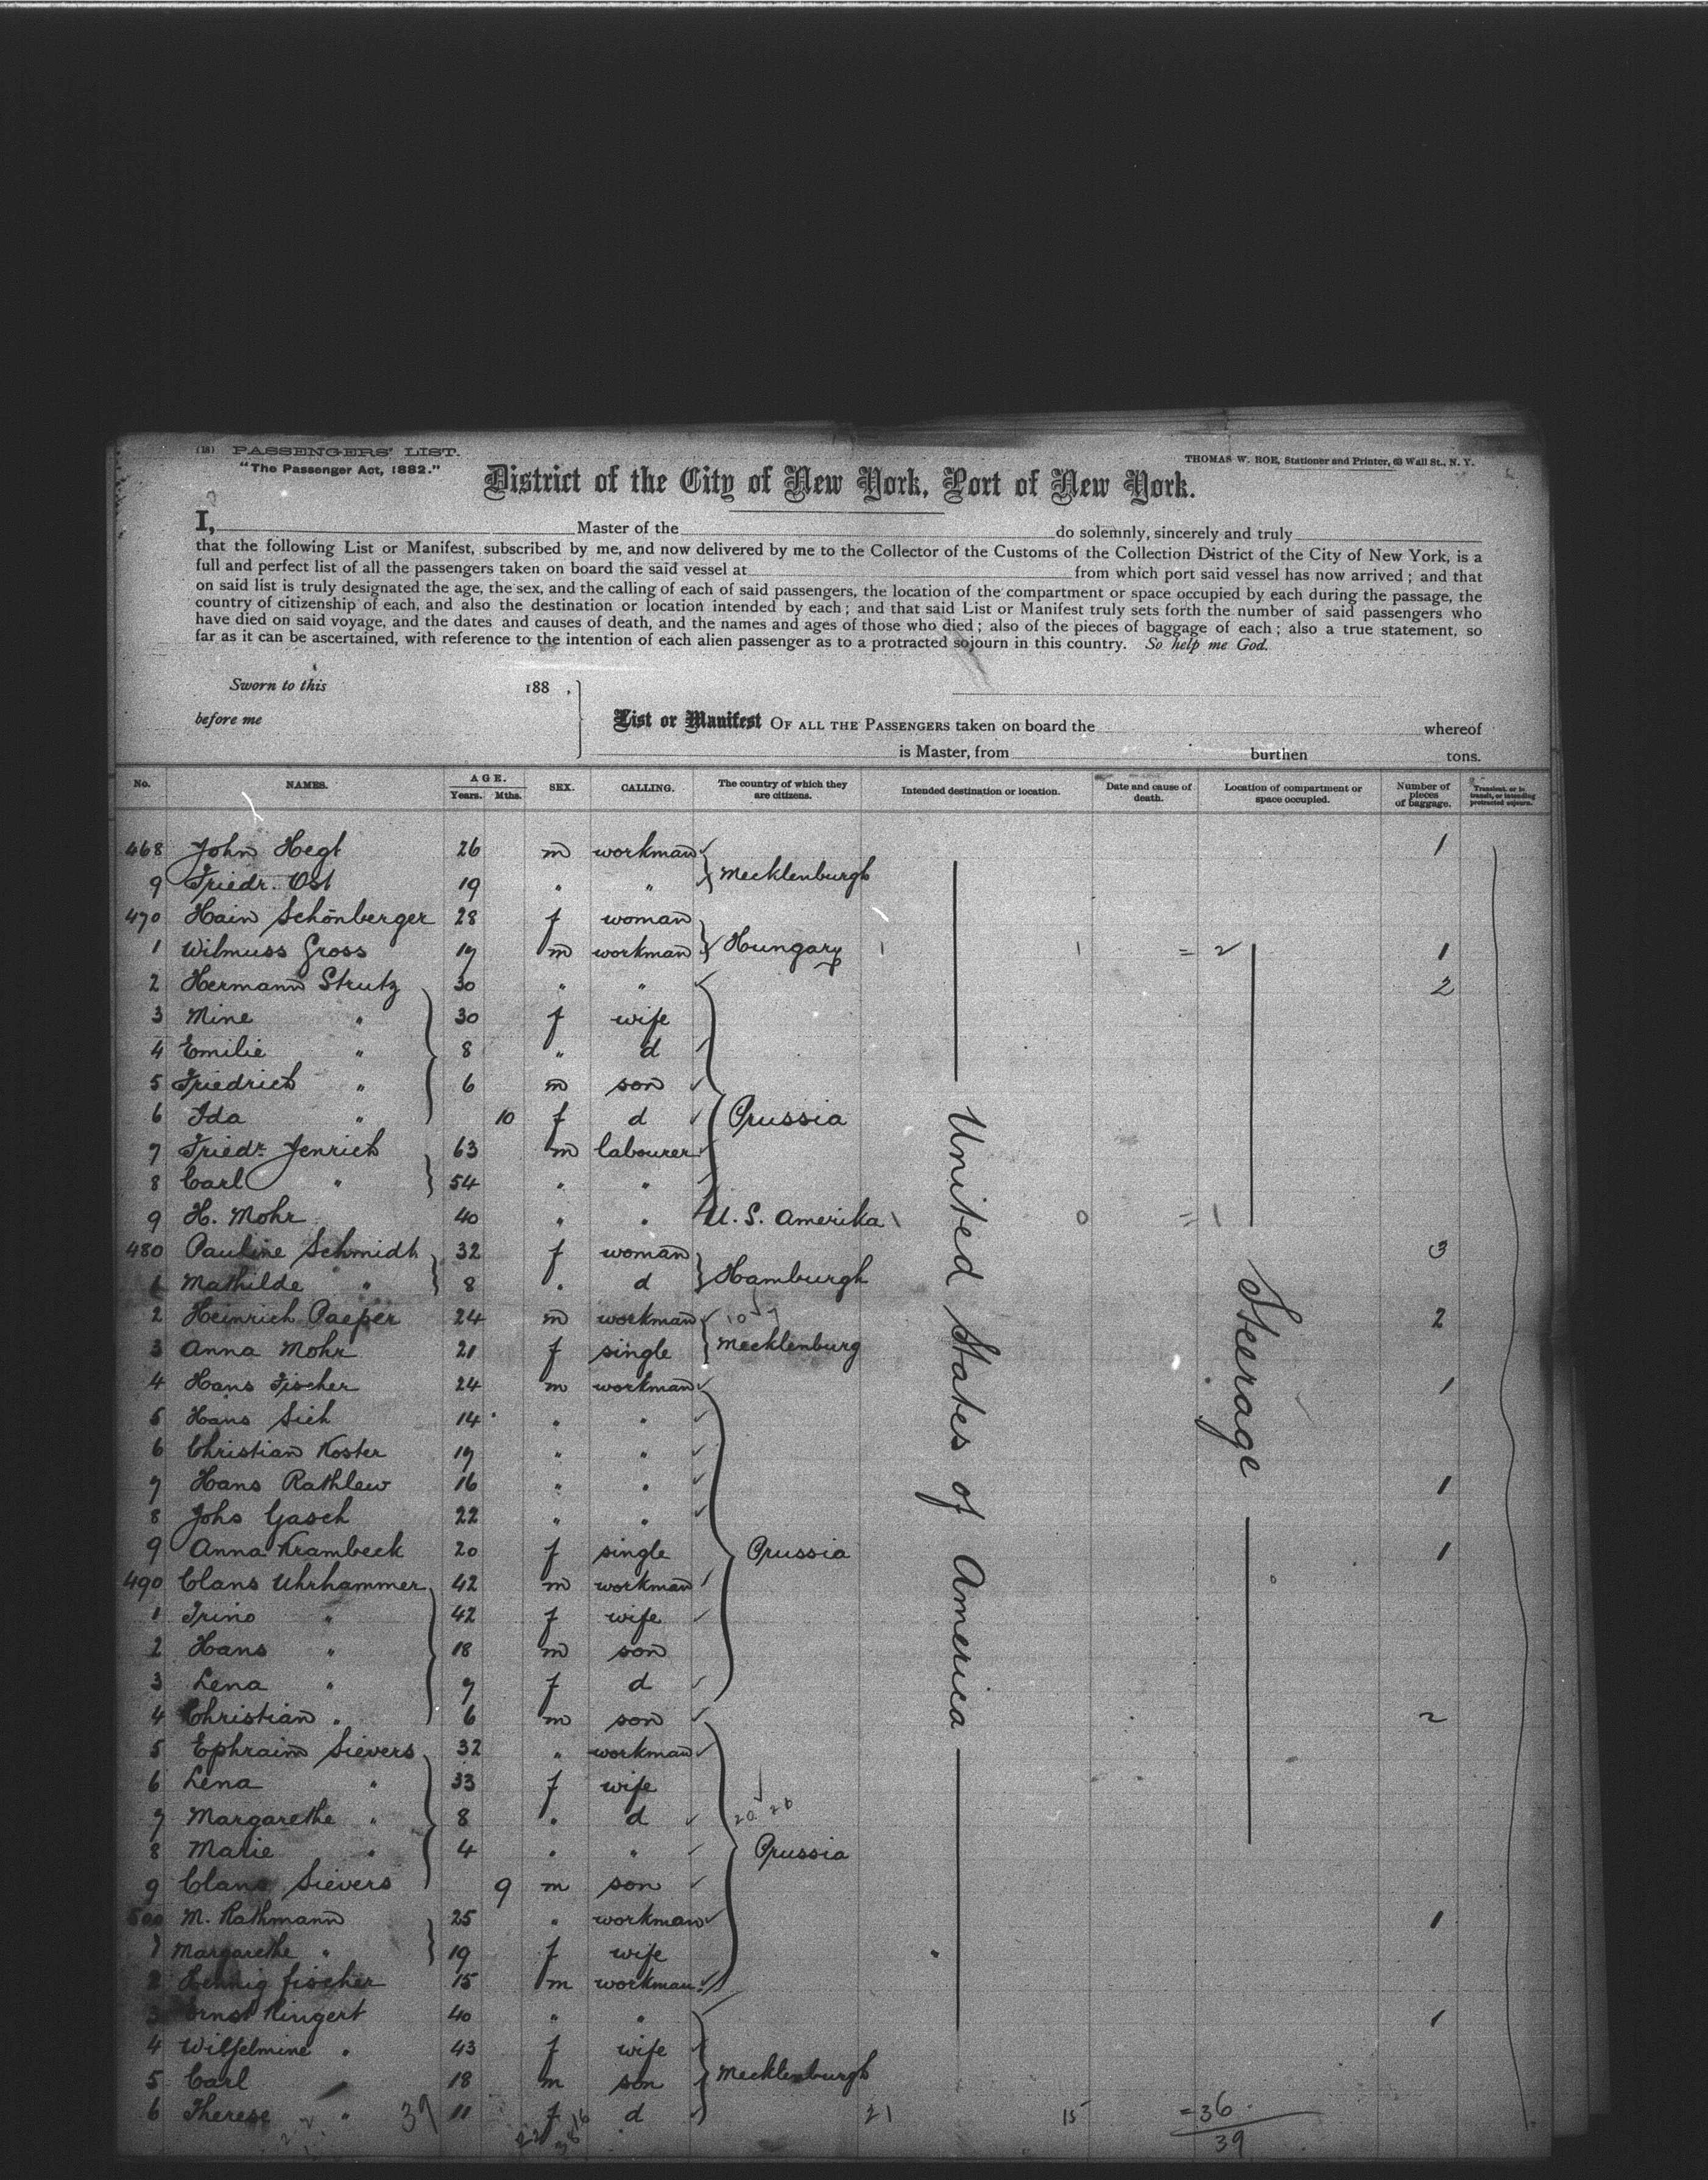 (18) PASSENGERS' LIST.
"The Passenger Act, 1882."
THOMAS W. ROE, Stationer and Printer, 63 Wall St., N. Y.
District of the City of New York, Port of New York.
I, Master of the do solemnly, sincerely and truly
that the following List or Manifest, subscribed by me, and now delivered by me to the Collector of the Customs of the Collection District of the City of New York, is a
full and perfect list of all the passengers taken on board the said vessel at from which port said vessel has now arrived; and that
on said list is truly designated the age, the sex, and the calling of each of said passengers, the location of the compartment or space occupied by each during the passage, the
country of citizenship of each, and also the destination or location intended by each; and that said List or Manifest truly sets forth the number of said passengers who
have died on said voyage, and the dates and causes of death, and the names and ages of those who died; also of the pieces of baggage of each; also a true statement, so
far as it can be ascertained, with reference to the intention of each alien passenger as to a protracted sojourn in this country. So help me God.
Sworn to this 188 ,
before me
List or Manifest OF ALL THE PASSENGERS taken on board the whereof
is Master, from burthen tons.
No. NAMES. AGE. Years. Mths. SEX. CALLING. The country of which they are citizens. Intended destination or location. Date and cause of death. Location of compartment or space occupied. Number of pieces of baggage. Transient, or in transit, or intending protracted sojourn.
468 John Hegt 26 m workman 1
9 Friedr. Ost 19 " " Mecklenburgh
470 Hain Schönberger 28 f woman
1 Wilmuss Gross 19 m workman Hungary 1 1 = 2 1
2 Hermann Strutz 30 " " 2
3 Mine " 30 f wife
4 Emilie " 8 " d
5 Friedrich " 6 m son
6 Ida " 10 f d Prussia
7 Friedr. Jenrich 63 m labourer
8 Carl " 54 " "
9 H. Mohr 40 " " U. S. Amerika 1 0 = 1
480 Pauline Schmidt 32 f woman 3
1 Mathilde " 8 " d Hamburgh
2 Heinrich Paeper 24 m workman 2
3 Anna Mohr 21 f single Mecklenburg
4 Hans Fischer 24 m workman 1
5 Hans Sieh 14 " "
6 Christian Koster 19 " "
7 Hans Rathlew 16 " " 1
8 Johs Gasch 22 " "
9 Anna Krambeck 20 f single Prussia 1
490 Claus Uhrhammer 42 m workman
1 Trino " 42 f wife
2 Hans " 18 m son
3 Lena " 7 f d
4 Christian " 6 m son 2
5 Ephraim Sievers 32 " workman
6 Lena " 33 f wife
7 Margarethe " 8 " d
8 Marie " 4 " " Prussia
9 Claus Sievers 9 m son
500 M. Rathmann 25 " workman 1
1 Margarethe " 19 f wife
2 Hennig Fischer 15 m workman
3 Ernst Ringert 40 " " 1
4 Wilhelmine " 43 f wife
5 Carl 18 m son Mecklenburgh
6 Therese " 39 11 f d 21 15 = 36
39
United States of America
Steerage